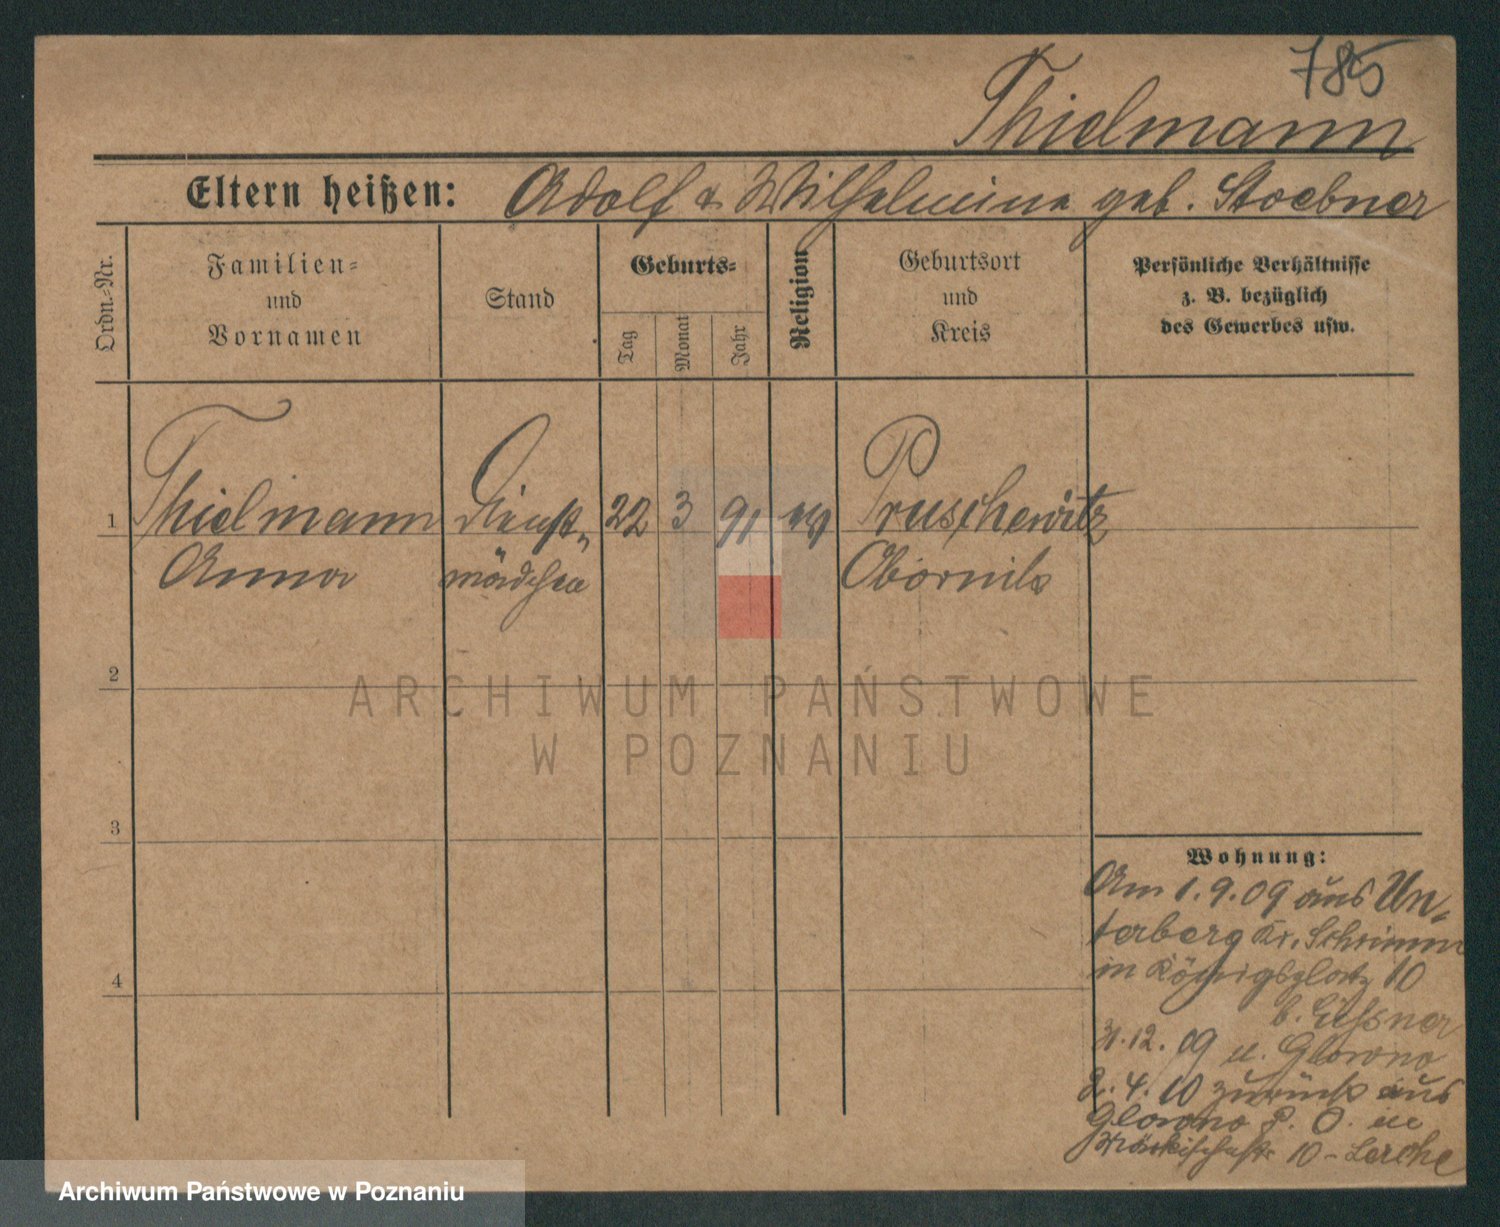 785
Thielmann
Eltern heißen: Adolf & Wilhelmine geb. Stoebner
Ordn.-Nr.
Familien-
und
Vornamen
Stand
Geburts-
Tag
Monat
Jahr
Religion
Geburtsort
und
Kreis
Persönliche Verhältnisse
z. B. bezüglich
des Gewerbes usw.
1 Thielmann Dienst- 22 3 91 ev Pruschewitz
Anna mädchen Obornik
2
ARCHIWUM PAŃSTWOWE
W POZNANIU
3
Wohnung:
Am 1.9.09 aus Un-
terberg Kr. Schrimm
in Königsplatz 10
b.
31.12.09 n. Glowno
2.4.10 zurück aus
Glowno P. O. in
10 - Lerche
4
Archiwum Państwowe w Poznaniu